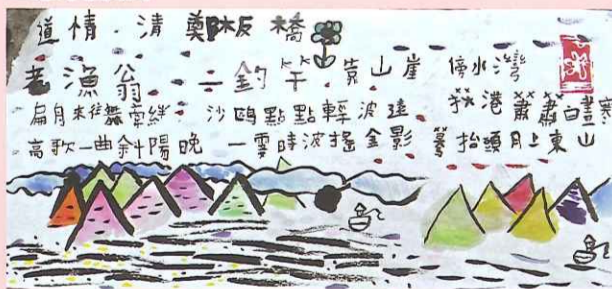 道情.清 鄭板橋
老漁翁.一釣竿.靠山崖 傍水灣
扁舟來往無牽絆.沙鷗點點輕波遠 荻港蕭蕭白晝寒
高歌一曲斜陽晚 一霎時波搖金影 驀抬頭月上東山